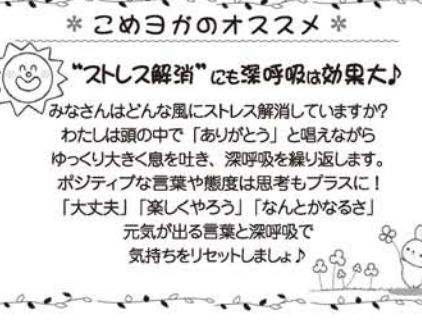 ＊こめヨガのオススメ＊
“ストレス解消”にも深呼吸は効果大♪
みなさんはどんな風にストレス解消していますか?
わたしは頭の中で「ありがとう」と唱えながら
ゆっくり大きく息を吐き、深呼吸を繰り返します。
ポジティブな言葉や態度は思考もプラスに!
「大丈夫」「楽しくやろう」「なんとかなるさ」
元気が出る言葉と深呼吸で
気持ちをリセットしましょ♪